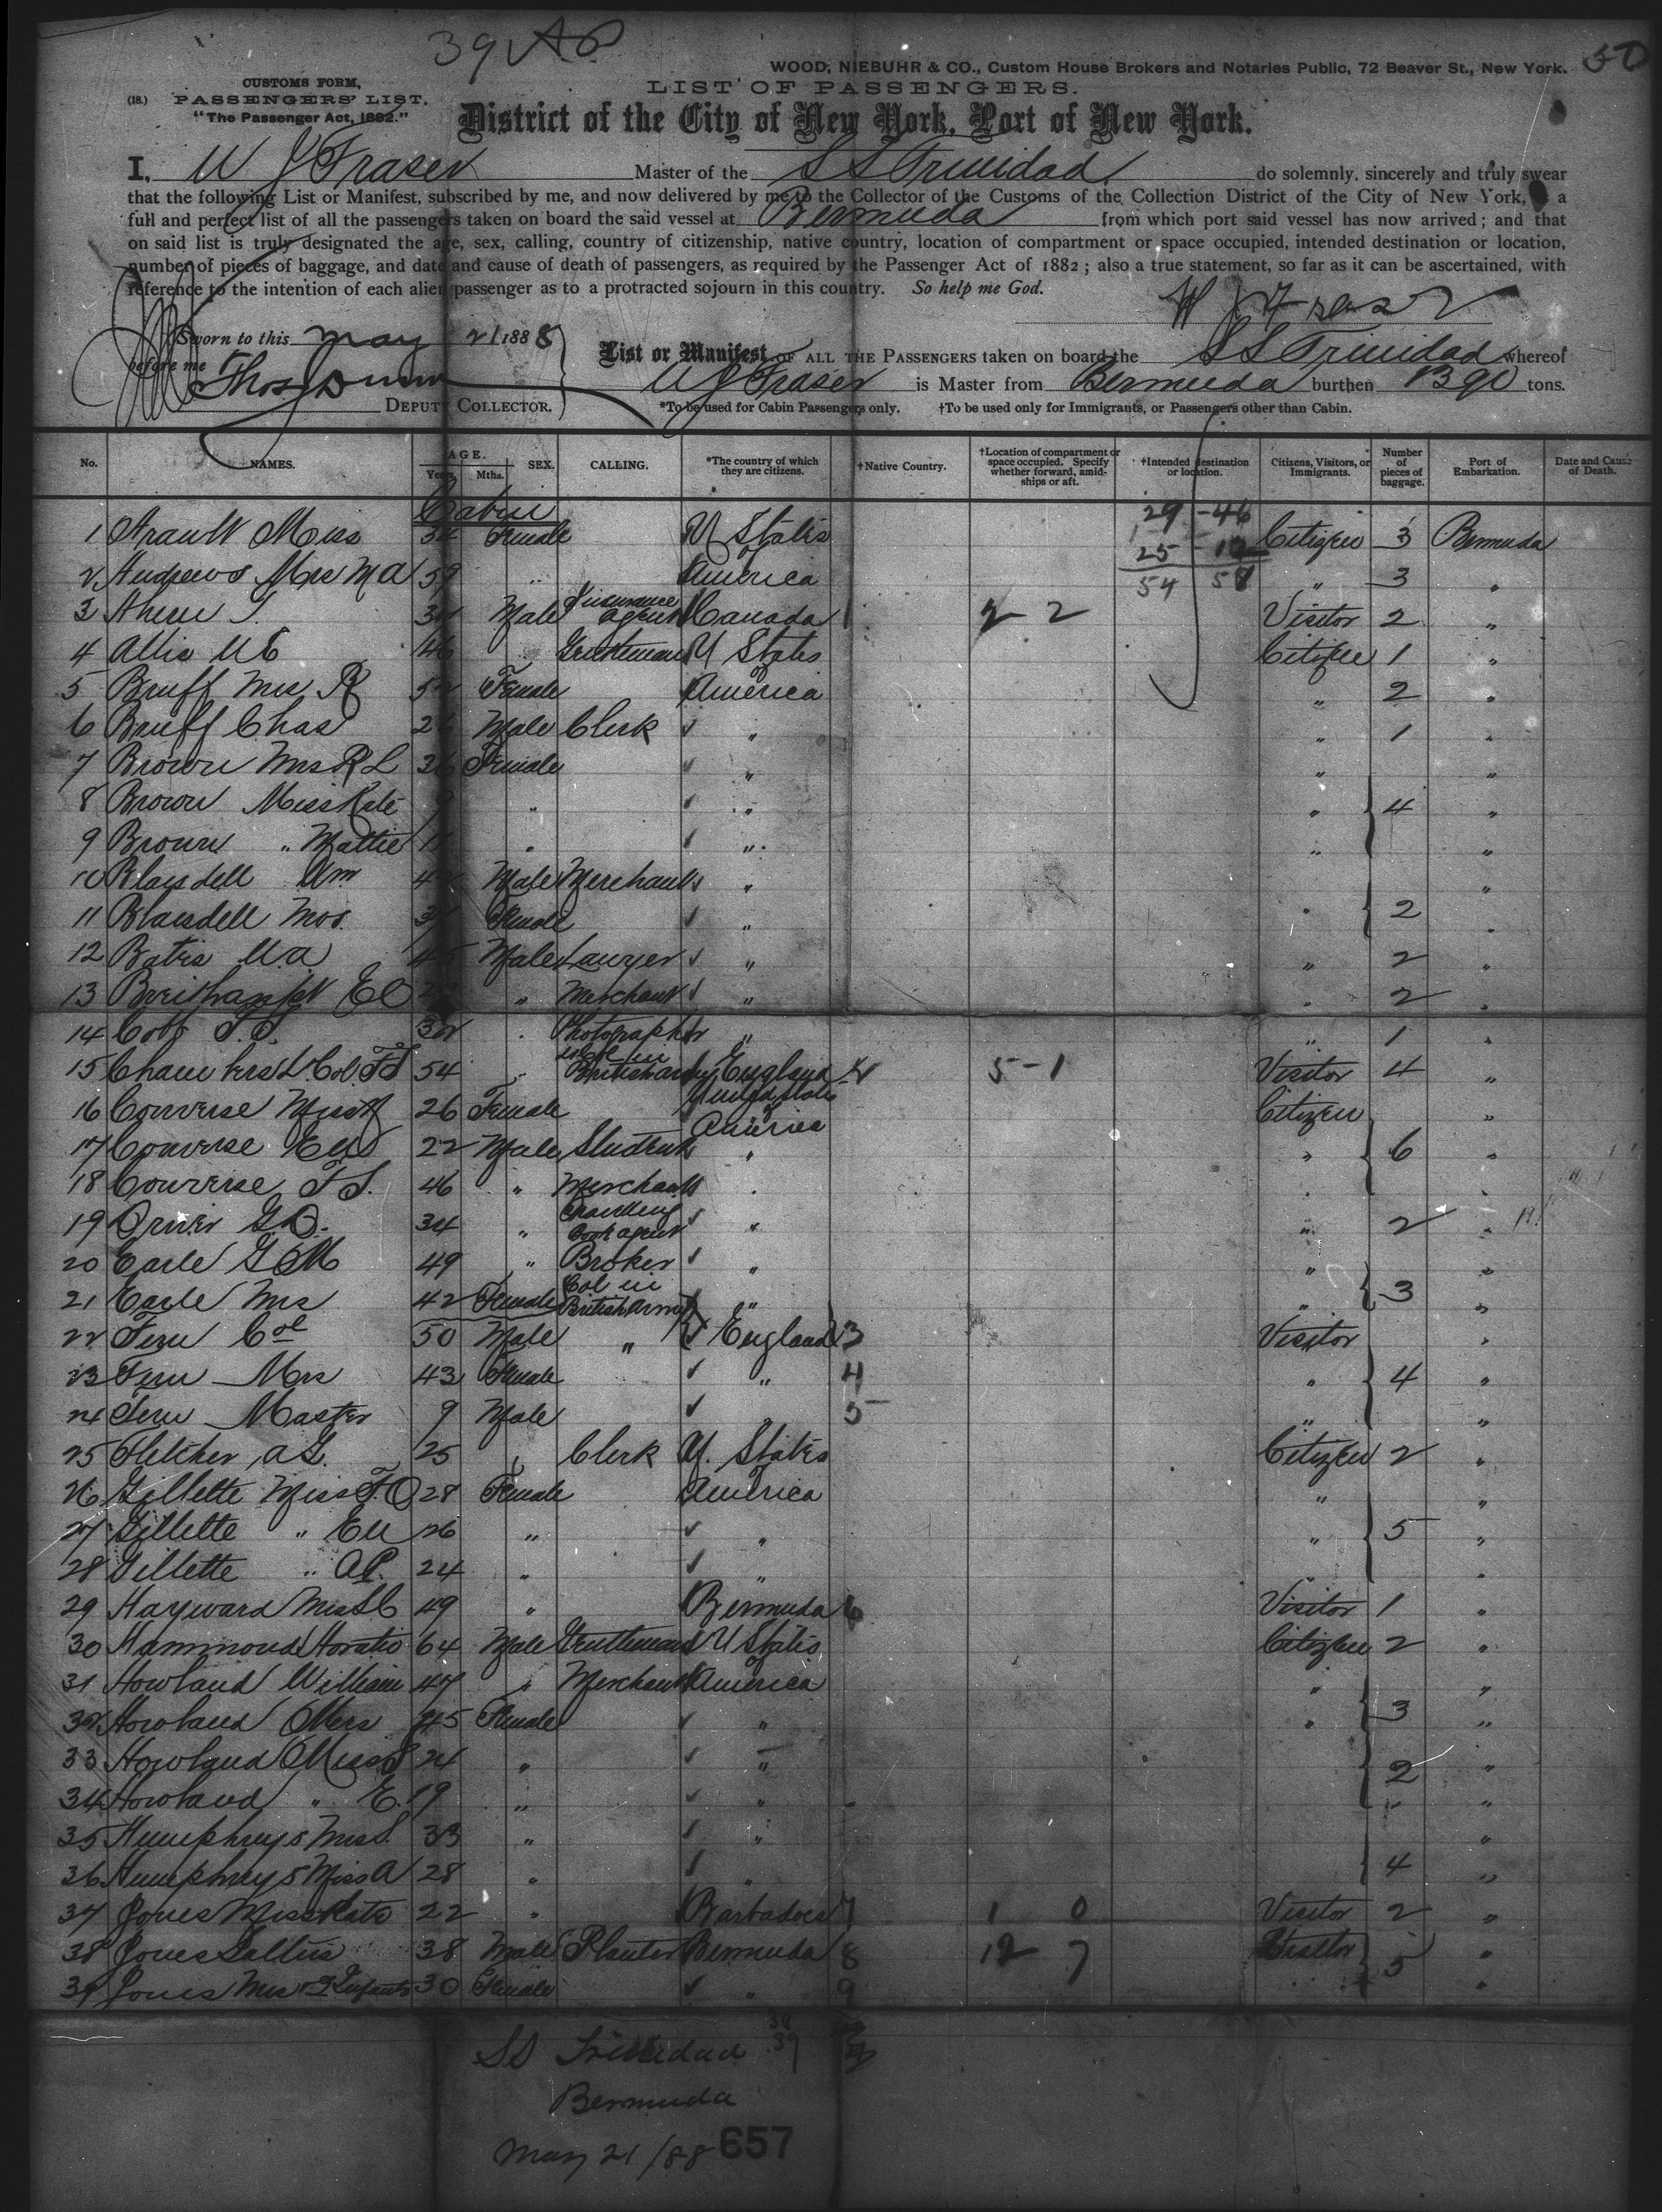 39
50
WOOD, NIEBUHR & CO., Custom House Brokers and Notaries Public, 72 Beaver St., New York.
CUSTOMS FORM,
(18.) PASSENGERS' LIST.
"The Passenger Act, 1882."
LIST OF PASSENGERS.
District of the City of New York, Port of New York.
I, W J Fraser Master of the SS Trinidad do solemnly, sincerely and truly swear
that the following List or Manifest, subscribed by me, and now delivered by me to the Collector of the Customs of the Collection District of the City of New York, is a
full and perfect list of all the passengers taken on board the said vessel at Bermuda from which port said vessel has now arrived; and that
on said list is truly designated the age, sex, calling, country of citizenship, native country, location of compartment or space occupied, intended destination or location,
number of pieces of baggage, and date and cause of death of passengers, as required by the Passenger Act of 1882; also a true statement, so far as it can be ascertained, with
reference to the intention of each alien passenger as to a protracted sojourn in this country. So help me God.
W J Fraser
Sworn to this May 21 1888
before me Thos Dunn
DEPUTY COLLECTOR.
List or Manifest OF ALL THE PASSENGERS taken on board the SS Trinidad whereof
W J Fraser is Master from Bermuda burthen tons.
*To be used for Cabin Passengers only. †To be used only for Immigrants, or Passengers other than Cabin.
No. NAMES. AGE. Years. Mths. SEX. CALLING. *The country of which they are citizens. †Native Country. †Location of compartment or space occupied. Specify whether forward, amidships or aft. †Intended destination or location. Citizens, Visitors, or Immigrants. Number of pieces of baggage. Port of Embarkation. Date and Cause of Death.
Cabin
29 - 46
1 Miss Female U States Citizen 3 Bermuda
25 - 12
2 Andrews Mrs M A 59 " of America " 3 "
54 58
3 Ahern Male Insurance agent Canada 1 2 - 2 Visitor 2 "
4 46 Gentleman U States Citizen 1 "
5 Bruff Mrs R 52 Female of America " 2 "
6 Bruff Chas Male Clerk " " 1 "
7 Brown Mrs R L 36 Female " " "
8 Brown Miss Kate 9 " " " 4 "
9 Brown " Mattie " " " "
10 Blaisdell Wm Male Merchant " "
11 Blaisdell Mrs. Female " " 2 "
12 Bates W A 45 Male Lawyer " " 2 "
13 " Merchant " " 2 "
14 Photographer " " 1 "
15 Chambers Lt Col. 54 " Lt Col in British Army England 2 5 - 1 Visitor 4 "
16 Converse Miss 26 Female United States of America Citizen "
17 Converse 22 Male Student " " 6 "
18 Converse F S. 46 " Merchant " " "
19 34 " Book agent " " 2 "
20 Earle G M 49 " Broker " " "
21 Earle Mrs 42 Female Col in British Army " " 3 "
22 Col 50 Male " England 3 Visitor "
23 Mrs 43 Female " 4 " 4 "
24 Master 9 Male " 5 " "
25 Fletcher, A G. 25 " Clerk U. States Citizen 2 "
26 Gillette Miss F. O 28 Female of America " "
27 Gillette " 26 " " " 5 "
28 Gillette " A P. 24 " " "
29 Hayward 49 " Bermuda 6 Visitor 1 "
30 Hammond Horatio 64 Male Gentleman U States Citizen 2 "
31 Howland William 47 " Merchant of America " "
32 Howland Mrs 45 Female " " 3 "
33 Howland Miss S 24 " " 2 "
34 Howland " E. 19 " " "
35 Humphreys 33 " " "
36 Humphreys Miss A 28 " " 4 "
37 Jones Miss Kate 22 " Barbadoes 7 1 0 Visitor 2 "
38 Jones 38 Male Planter Bermuda 8 12 7 Visitor 5 "
39 Jones Mrs Infants 30 Female " 9 "
SS Trinidad 39
Bermuda
May 21/88 657